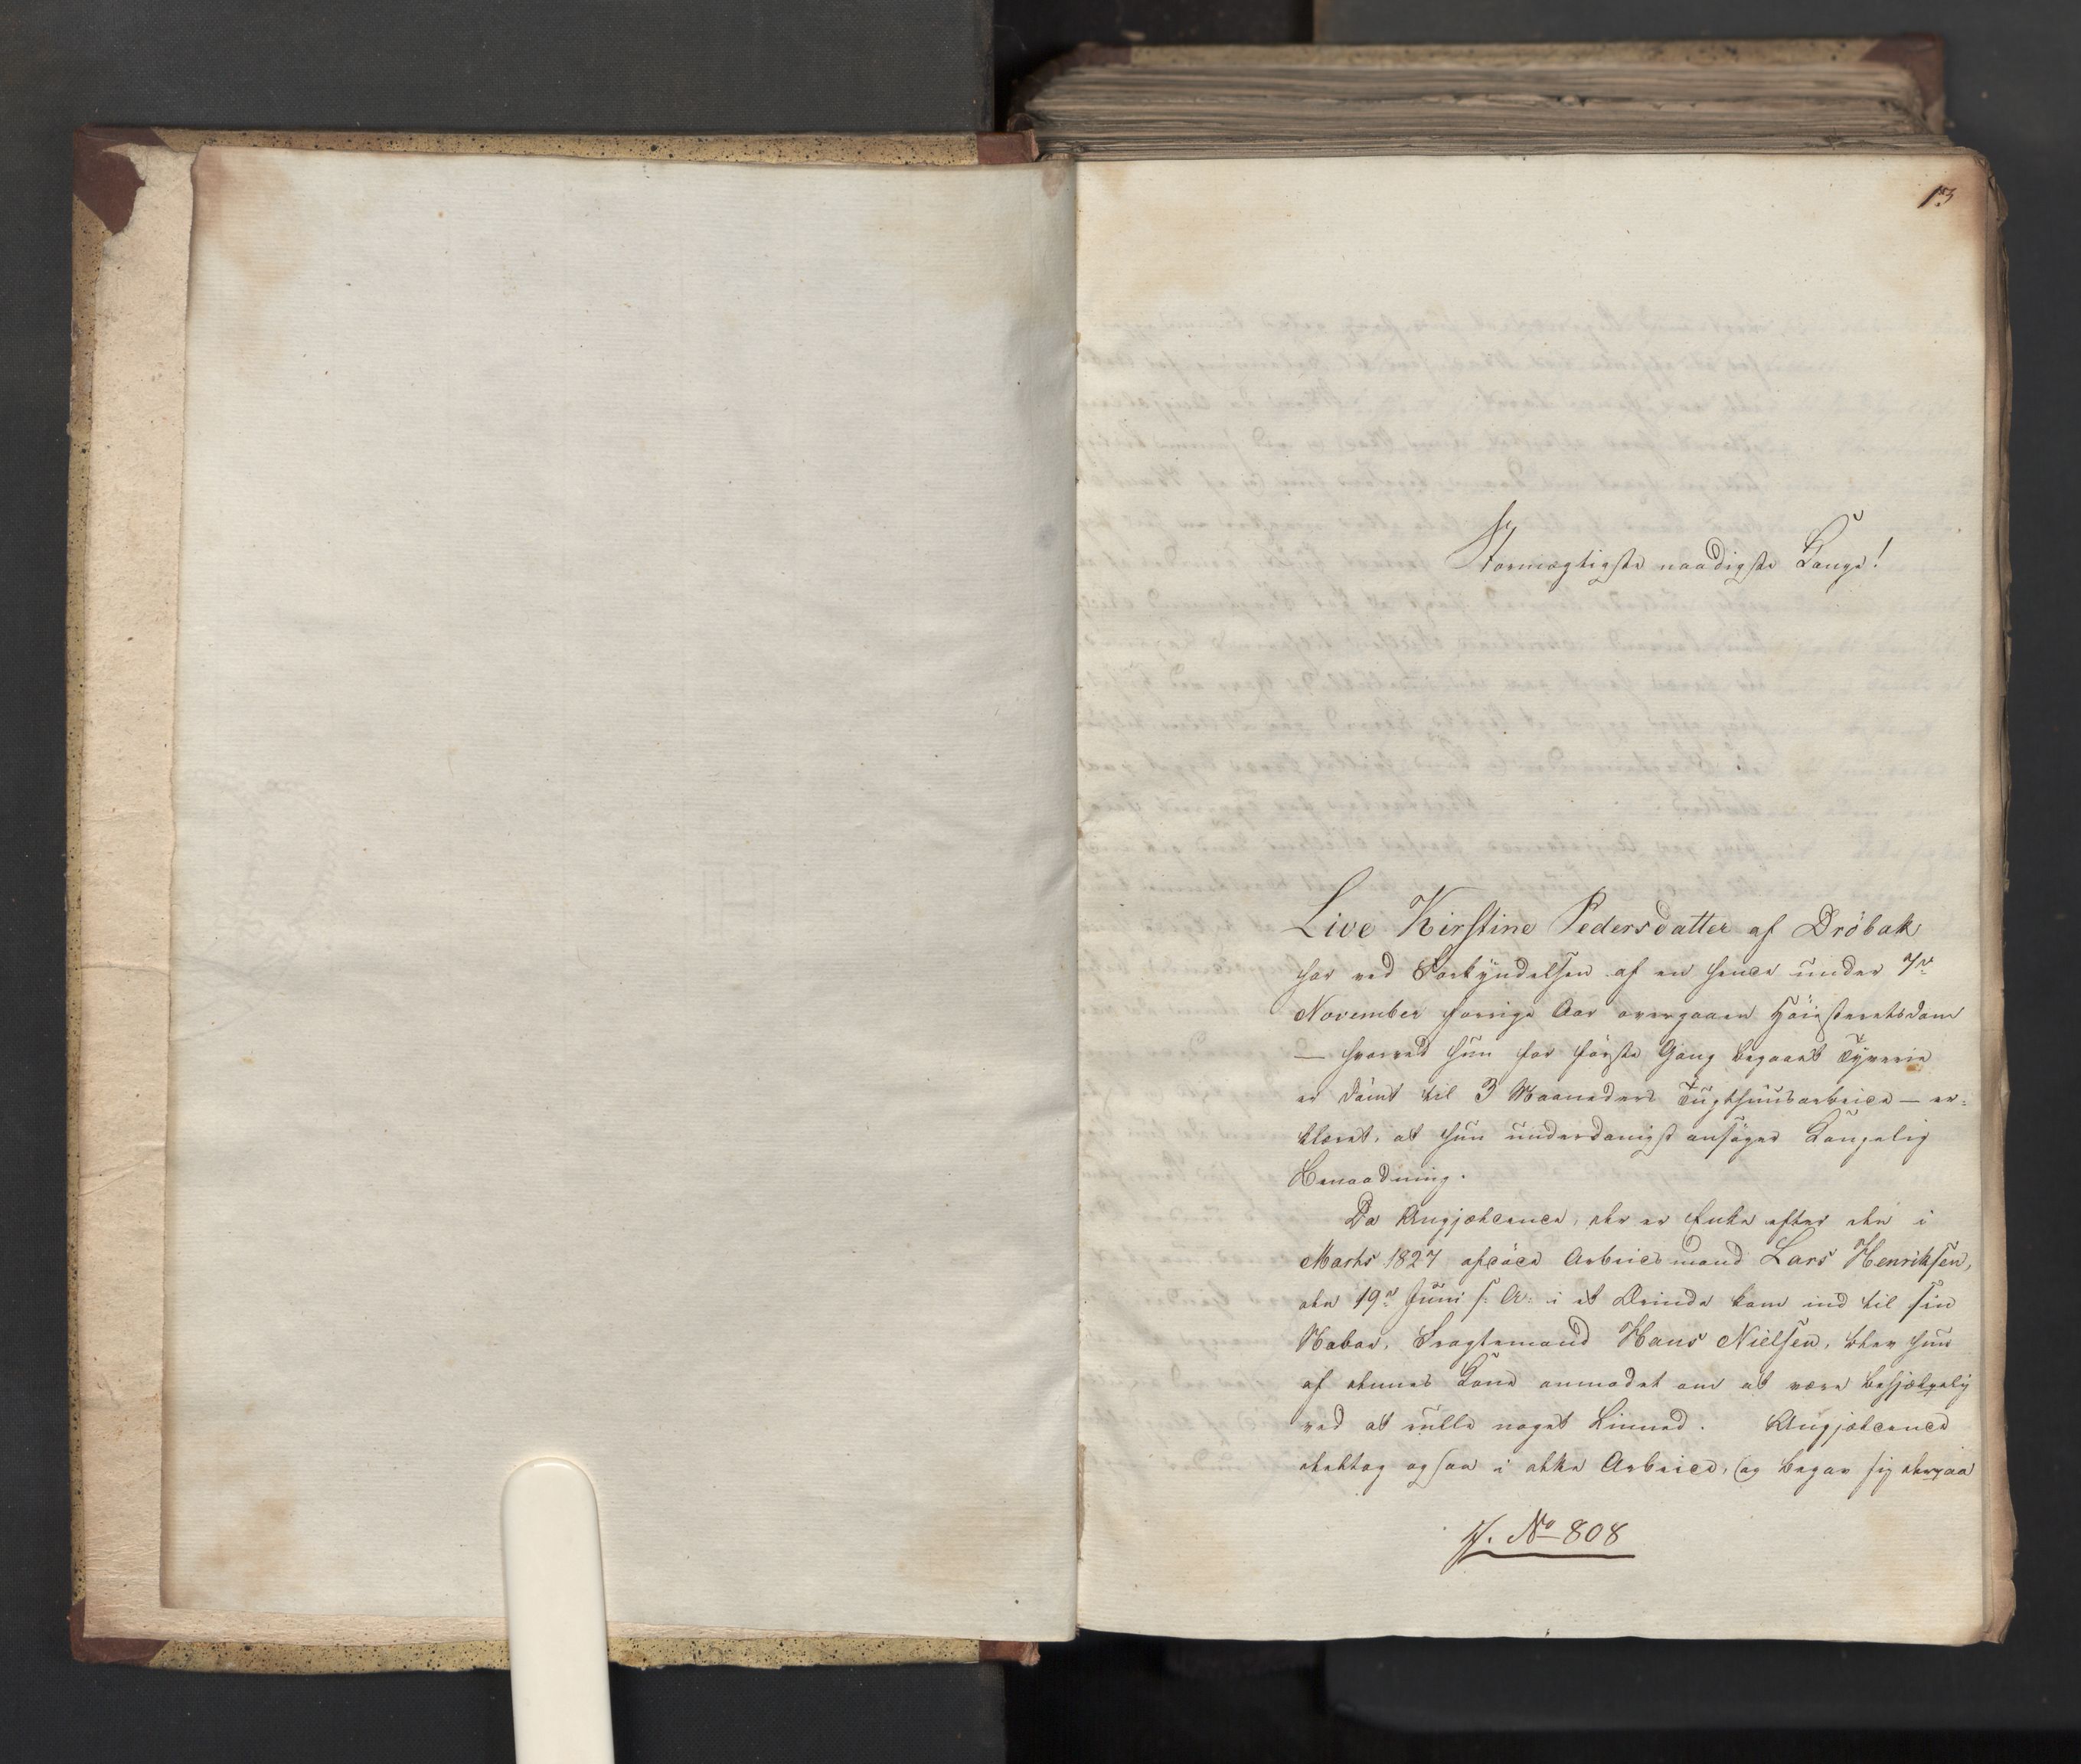 13
Stormægtigste naadigste Konge!
Live Kirstine Pedersdatter af Dröbak
har ved Forkyndelsen af en hende under 7de
November forrige Aar overgaaen Høiesteretsdom
— hvorved hun for første Gang begaaet Tyverie
er dömt til 3 Maaneders Tugthuusarbeide — er-
klæret, at hun underdanigst ansöger Kongelig
Benaadning.
Da Angjældende, der er Enke efter den i
Marts 1827 afdöde Arbeidsmand Lars Henriksen,
den 19de Juni s. A. i et Ærinde kom ind til sin
Naboe, Fragtemand Hans Nielsen, blev hun
af dennes Kone anmodet om at være behjælpelig
ved at rulle noget Linned. Angjældende
deeltog ogsaa i dette Arbeide, og begav sig derpaa
J. No 808